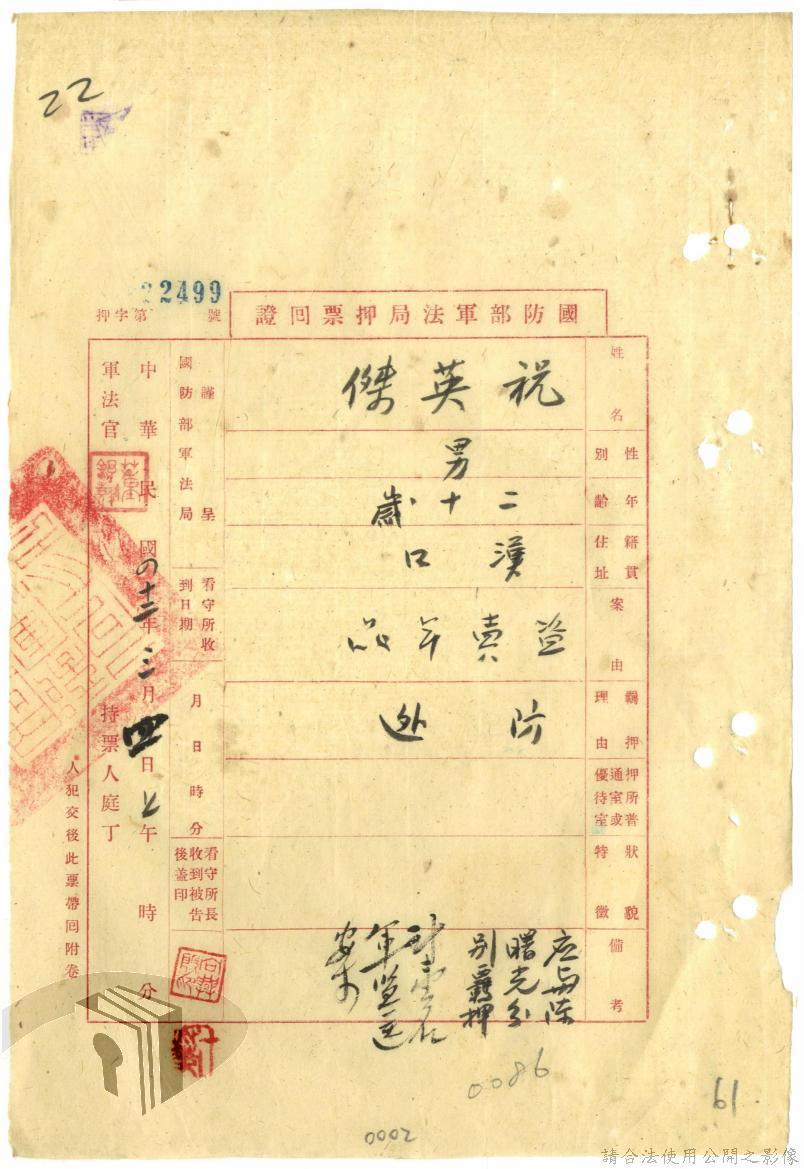 22
22499
押字第 號
國防部軍法局押票回證
姓名
祝英傑
性別
男
年齡
二十歲
籍貫住址
漢口
案由
盜賣軍品
羈押理由
防逃
押所普通室或優待室
狀貌特徵
備考
應與陳
曙光分
別羈押
軍監
謹呈
國防部軍法局
看守所收到日期
月日時分
看守所長收到被告後蓋印
中華民國四十二年三月四日上午時分
軍法官
持票人庭丁
人犯交後此票帶回附卷
0086
61
0002
請合法使用公開之影像